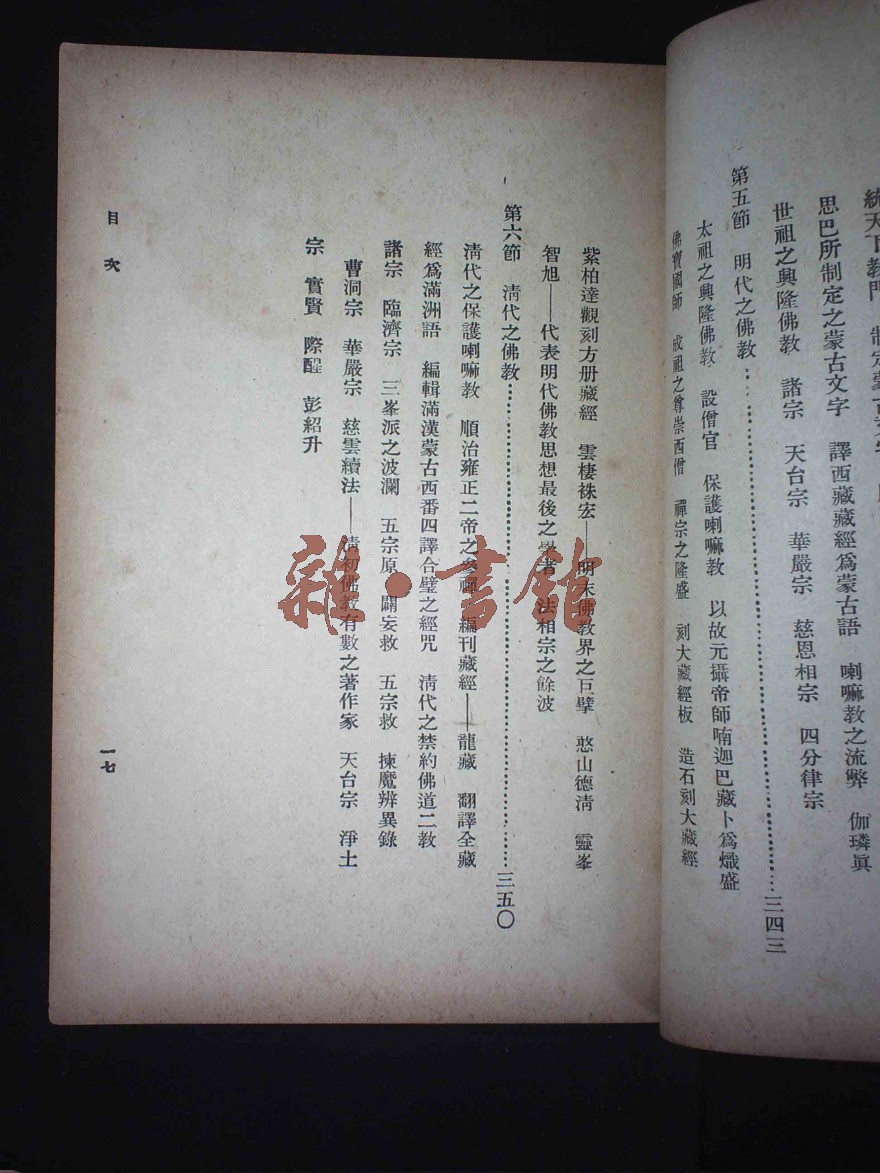 統天下教門
思巴所制定之蒙古文字　譯西藏藏經爲蒙古語　喇嘛教之流弊　伽璘眞
世祖之興隆佛教　諸宗　天台宗　華嚴宗　慈恩相宗　四分律宗
第五節　明代之佛教…………三四三
太祖之興隆佛教　設僧官　保護喇嘛教　以故元攝帝師喃迦巴藏卜爲熾盛
佛寶國師　成祖之尊崇西僧　禪宗之隆盛　刻大藏經板　造石刻大藏經
紫柏達觀刻方册藏經　雲棲袾宏——明末佛教界之巨擘　憨山德清　靈峯
智旭——代表明代佛教思想最後之學者　法相宗之餘波
第六節　清代之佛教…………三五〇
清代之保護喇嘛教　順治雍正二帝之參禪　編刊藏經——龍藏　翻譯全藏
經爲滿洲語　編輯滿漢蒙古西番四譯合璧之經咒　清代之禁約佛道二教
諸宗　臨濟宗　三峯派之波瀾　五宗原　闢妄救　五宗救　揀魔辨異錄
曹洞宗　華嚴宗　慈雲續法——清初佛教有數之著作家　天台宗　淨土
宗　實賢　際醒　彭紹升
目次
一七
雜·書館